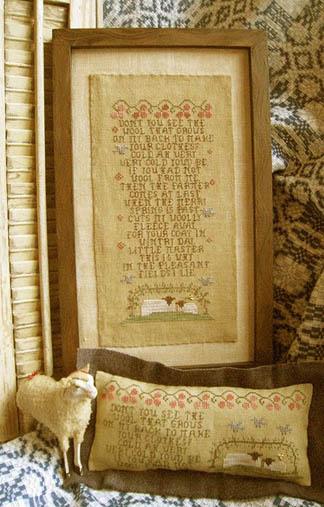 DON'T YOU SEE THE
WOOL THAT GROWS
ON MY BACK TO MAKE
YOUR CLOTHES?
COLD AH VERY
VERY COLD YOU'D BE
IF YOU HAD NOT
WOOL FROM ME
THEN THE FARMER
COMES AT LAST
WHEN THE MERRY
SPRING IS PAST
CUTS MY WOOLLY
FLEECE AWAY
FOR YOUR COAT IN
WINTRY DAY
LITTLE MASTER
THIS IS WHY
IN THE PLEASANT
FIELDS I LIE
DON'T YOU SEE THE
WOOL THAT GROWS
ON MY BACK TO MAKE
YOUR CLOTHES
COLD AH VERY
VERY COLD YOU'D BE